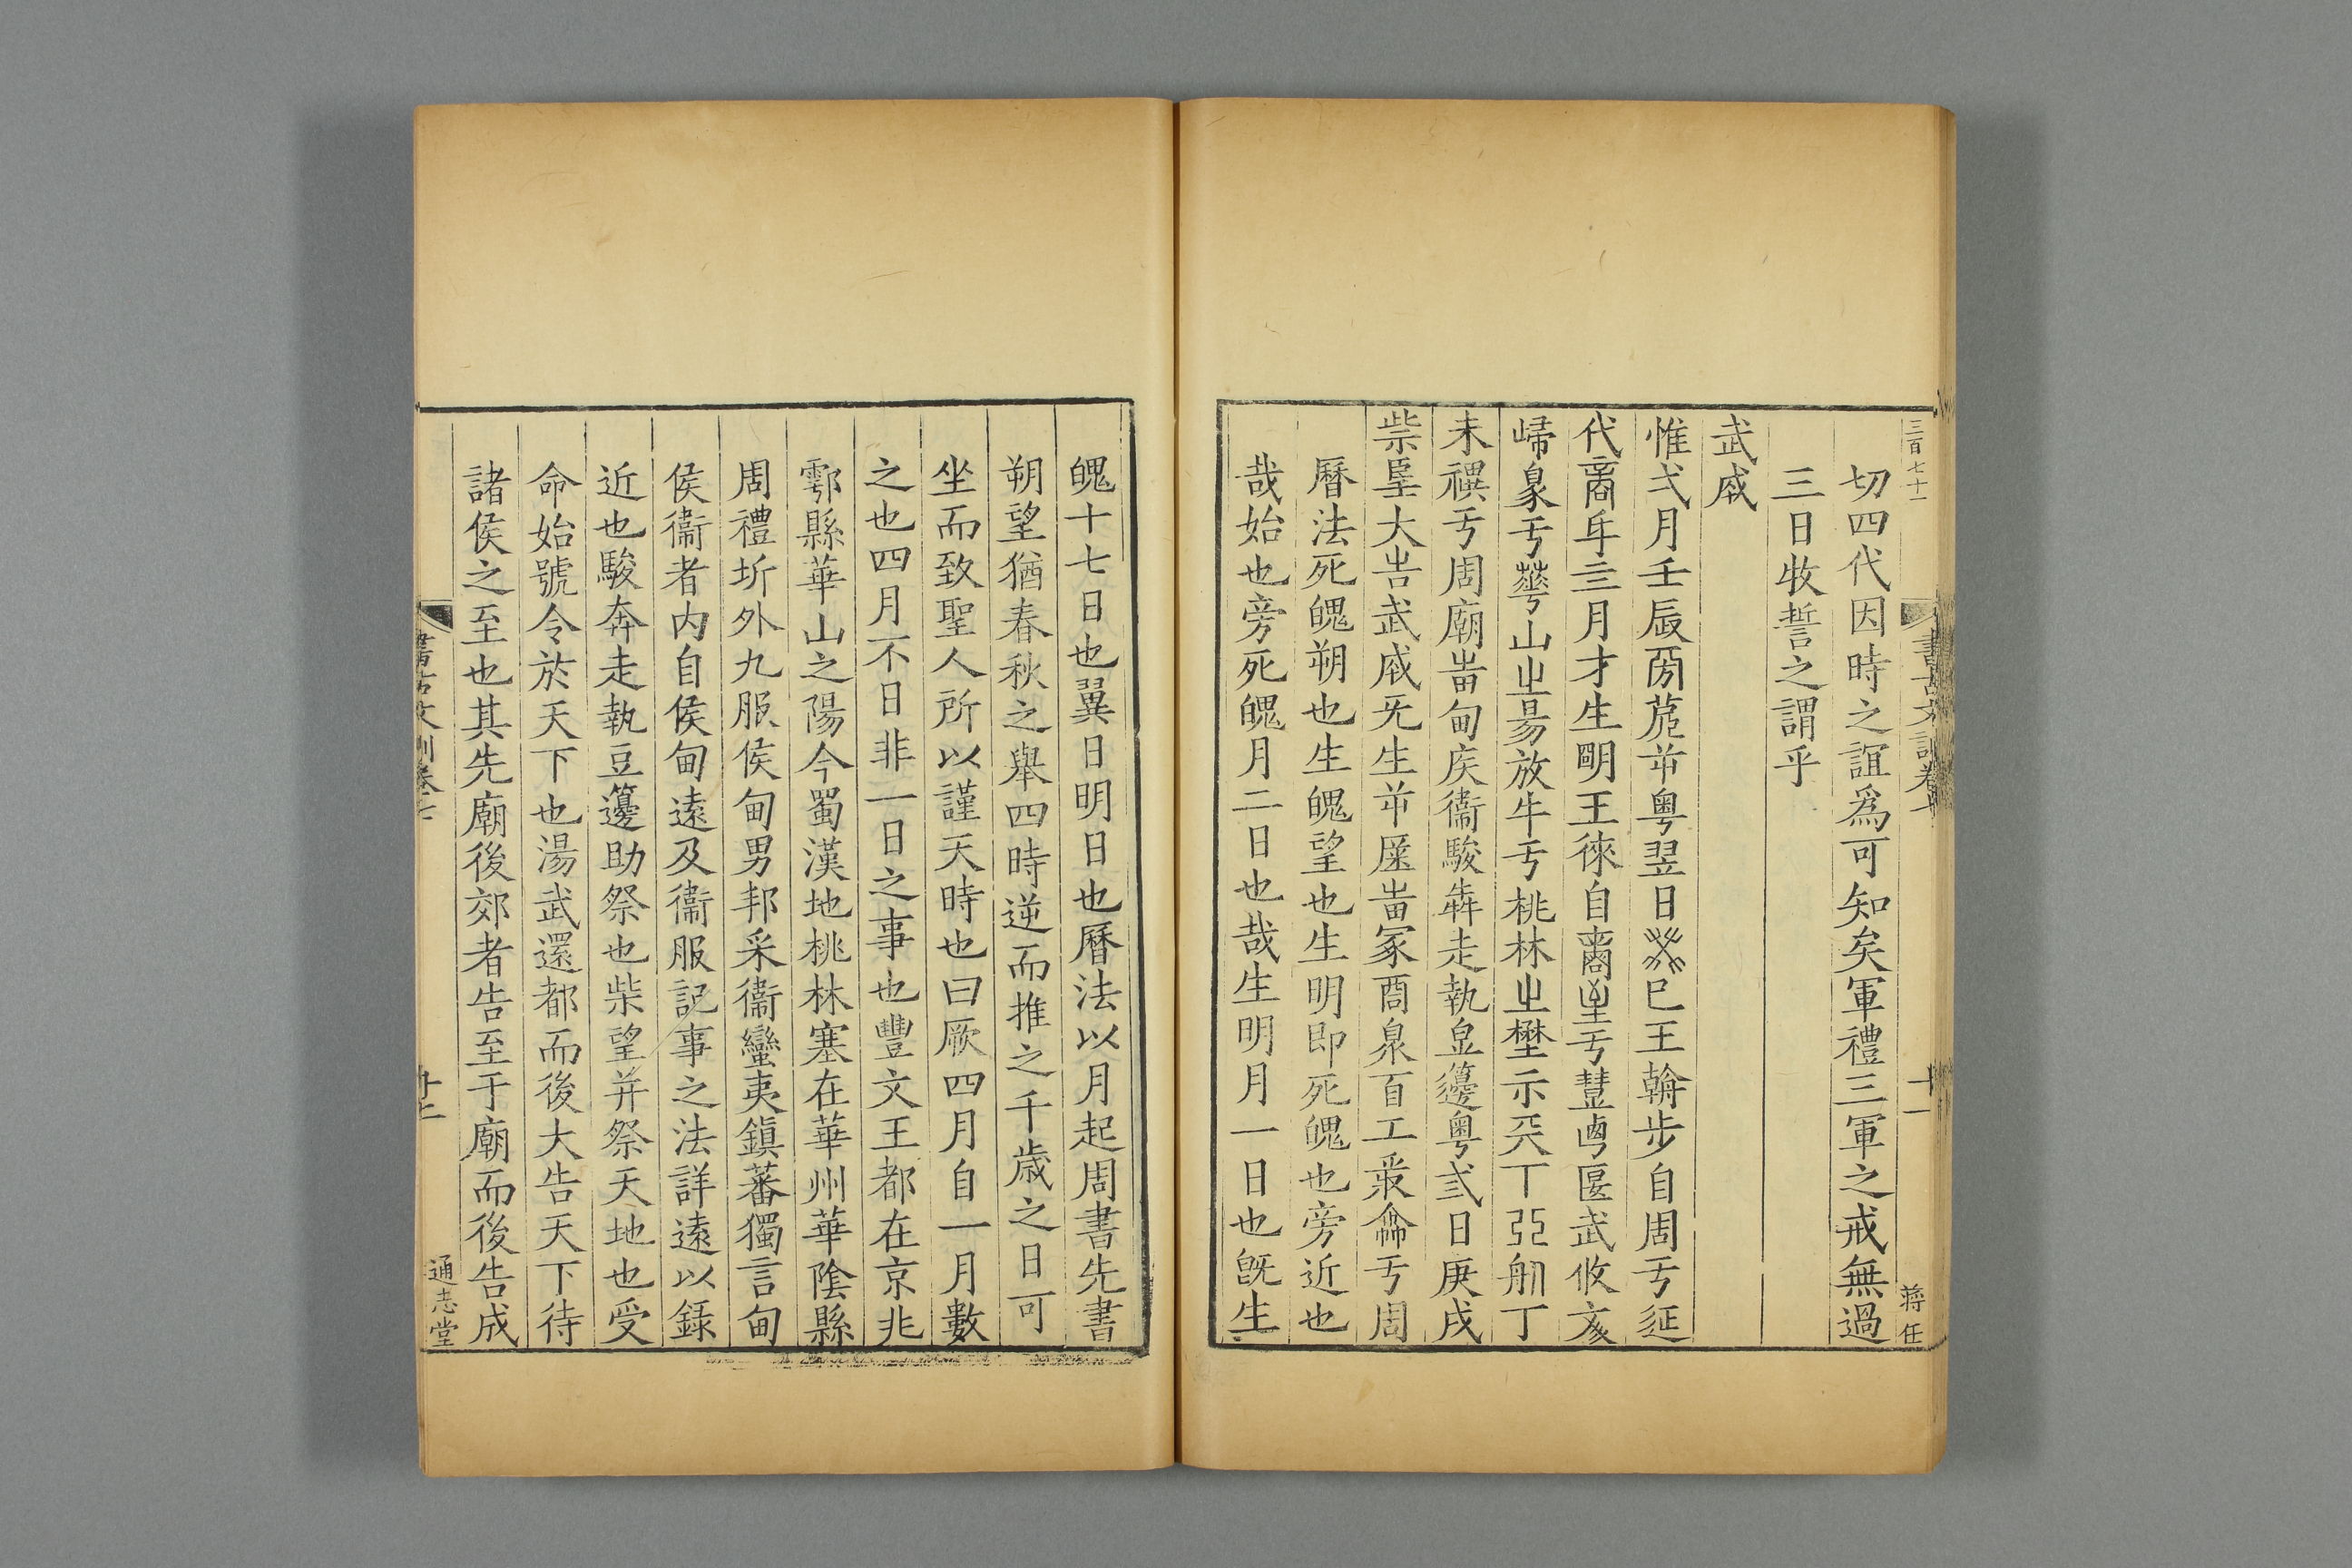 三百七十一
切四代因時之誼為可知矣軍禮三軍之戒無過
三日牧誓之謂乎
武成
惟弌月壬辰㫄𣦸𣍧粤翌日癸巳王翰步自周亏延
代𠾃年亖月才生朙王徠自𠾃𡉚亏豐𠧟匽武攸亥
歸𠻮亏𠌶山㞢昜放牛亏桃林㞢埜示兲丅弜舠丁
未禩亏周廟㞷甸矦衞駿犇走執豆籩粤弎日庚戌
祡朢大告武成旡生𣍧㞷冢商泉百工叢龠亏周
曆法死魄朔也生魄望也生明即死魄也旁近也
哉始也旁死魄月二日也哉生明月一日也旣生
書古文訓卷七
十一
蔣任
魄十七日也翼日明日也曆法以月起周書先書
朔望猶春秋之舉四時逆而推之千歲之日可
坐而致聖人所以謹天時也曰厥四月自一月數
之也四月不日非一日之事也豐文王都在京兆
鄠縣華山之陽今蜀漢地桃林塞在華州華陰縣
周禮圻外九服侯甸男邦采衞蠻夷鎮蕃獨言甸
侯衞者内自侯甸遠及衞服記事之法詳遠以錄
近也駿奔走執豆籩助祭也柴望并祭天地也受
命始號令於天下也湯武還都而後大告天下待
諸侯之至也其先廟後郊者告至于廟而後告成
書古文訓卷七
通志堂